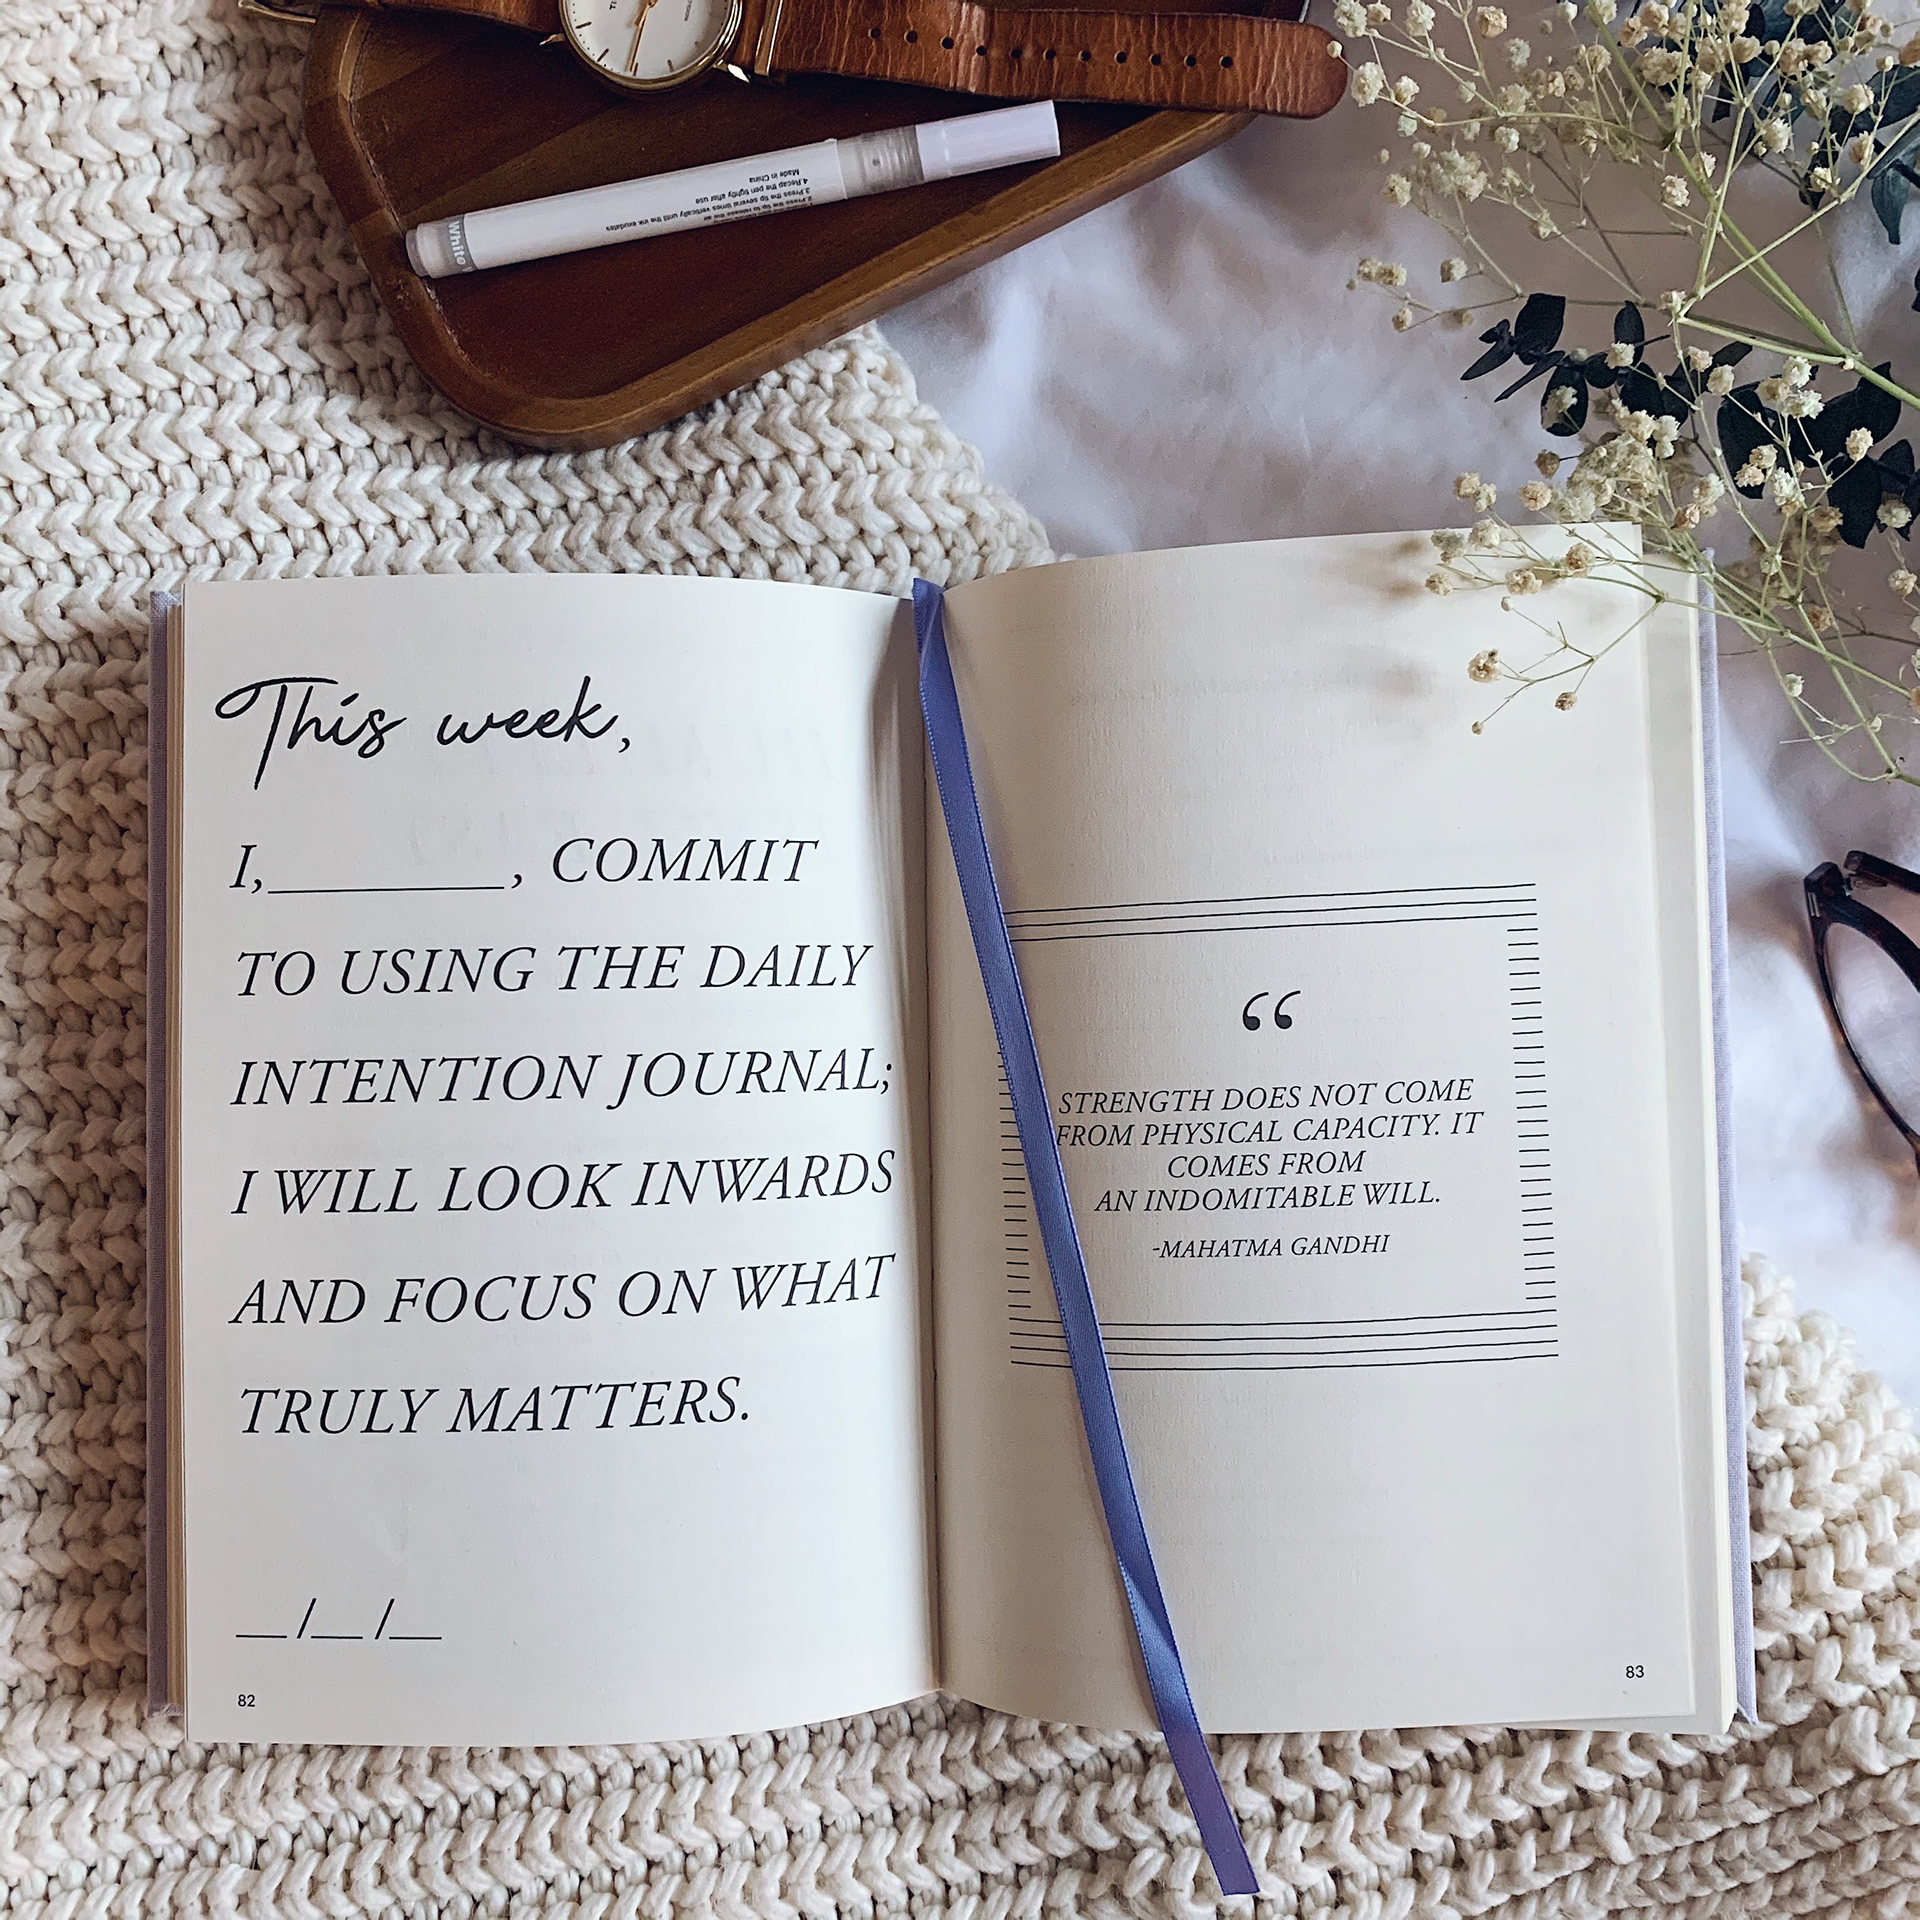 White
1.
2.Press the tip to release the air
3.Press the tip several times vertically until the ink exudates
4.Recap the pen tightly after use
Made in China
This week,
I,________, COMMIT
TO USING THE DAILY
INTENTION JOURNAL;
I WILL LOOK INWARDS
AND FOCUS ON WHAT
TRULY MATTERS.
__/__/__
82
“
STRENGTH DOES NOT COME
FROM PHYSICAL CAPACITY. IT
COMES FROM
AN INDOMITABLE WILL.
-MAHATMA GANDHI
83